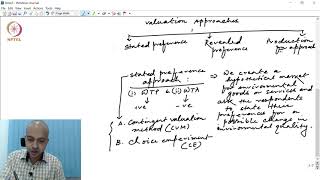 Note1 - Windows Journal
NPTEL
valuation approaches
stated preference
Revealed preference
Production fn approach
stated preference approach:
(i) WTP & (ii) WTA
+ve -ve
A. Contingent valuation method (CVM)
B. Choice experiment (CE)
⇒ We create a hypothetical market for environmental goods or services and ask the respondents to state their preference for possible change in environmental quality.